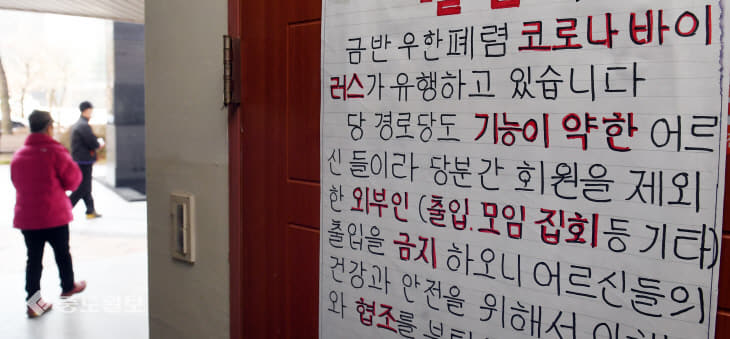 금반 우한폐렴 코로나 바이
러스가 유행하고 있습니다
당 경로당도 기능이 약한 어르
신 들이라 당분간 회원을 제외
한 외부인 (출입.모임 집회등 기타)
출입을 금지 하오니 어르신들의
건강과 안전을 위해서
와 협조를
중도일보